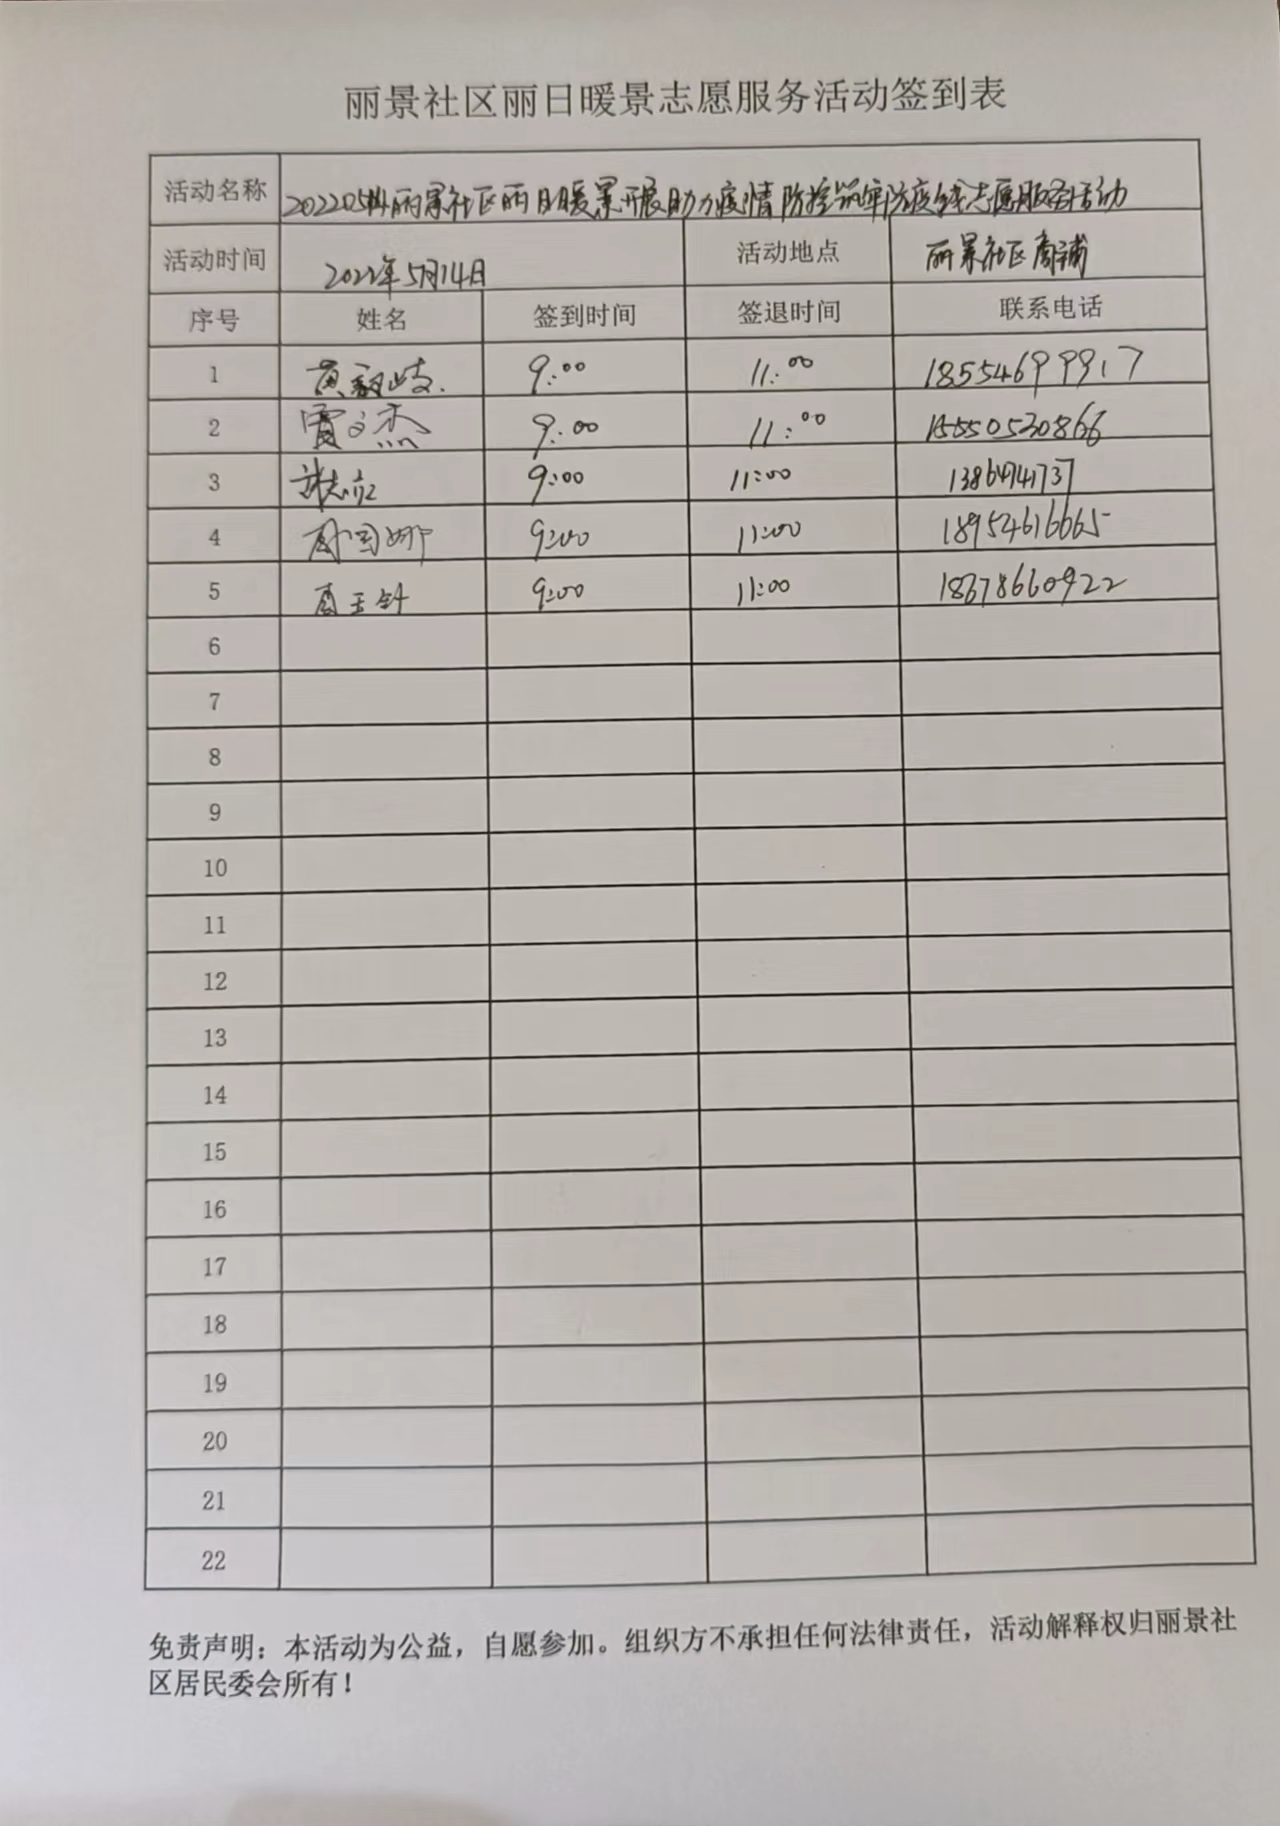 丽景社区丽日暖景志愿服务活动签到表
活动名称 20220514丽景社区丽日暖景开展助力疫情防控筑牢防疫线志愿服务活动
活动时间 2022年5月14日 活动地点 丽景社区商铺
序号 姓名 签到时间 签退时间 联系电话
1 9:00 11:00 18554699917
2 贾文杰 9:00 11:00 15550530866
3 9:00 11:00
4 周国娜 9:00 11:00 18954616665
5 9:00 11:00 18678660922
6
7
8
9
10
11
12
13
14
15
16
17
18
19
20
21
22
免责声明：本活动为公益，自愿参加。组织方不承担任何法律责任，活动解释权归丽景社
区居民委会所有！